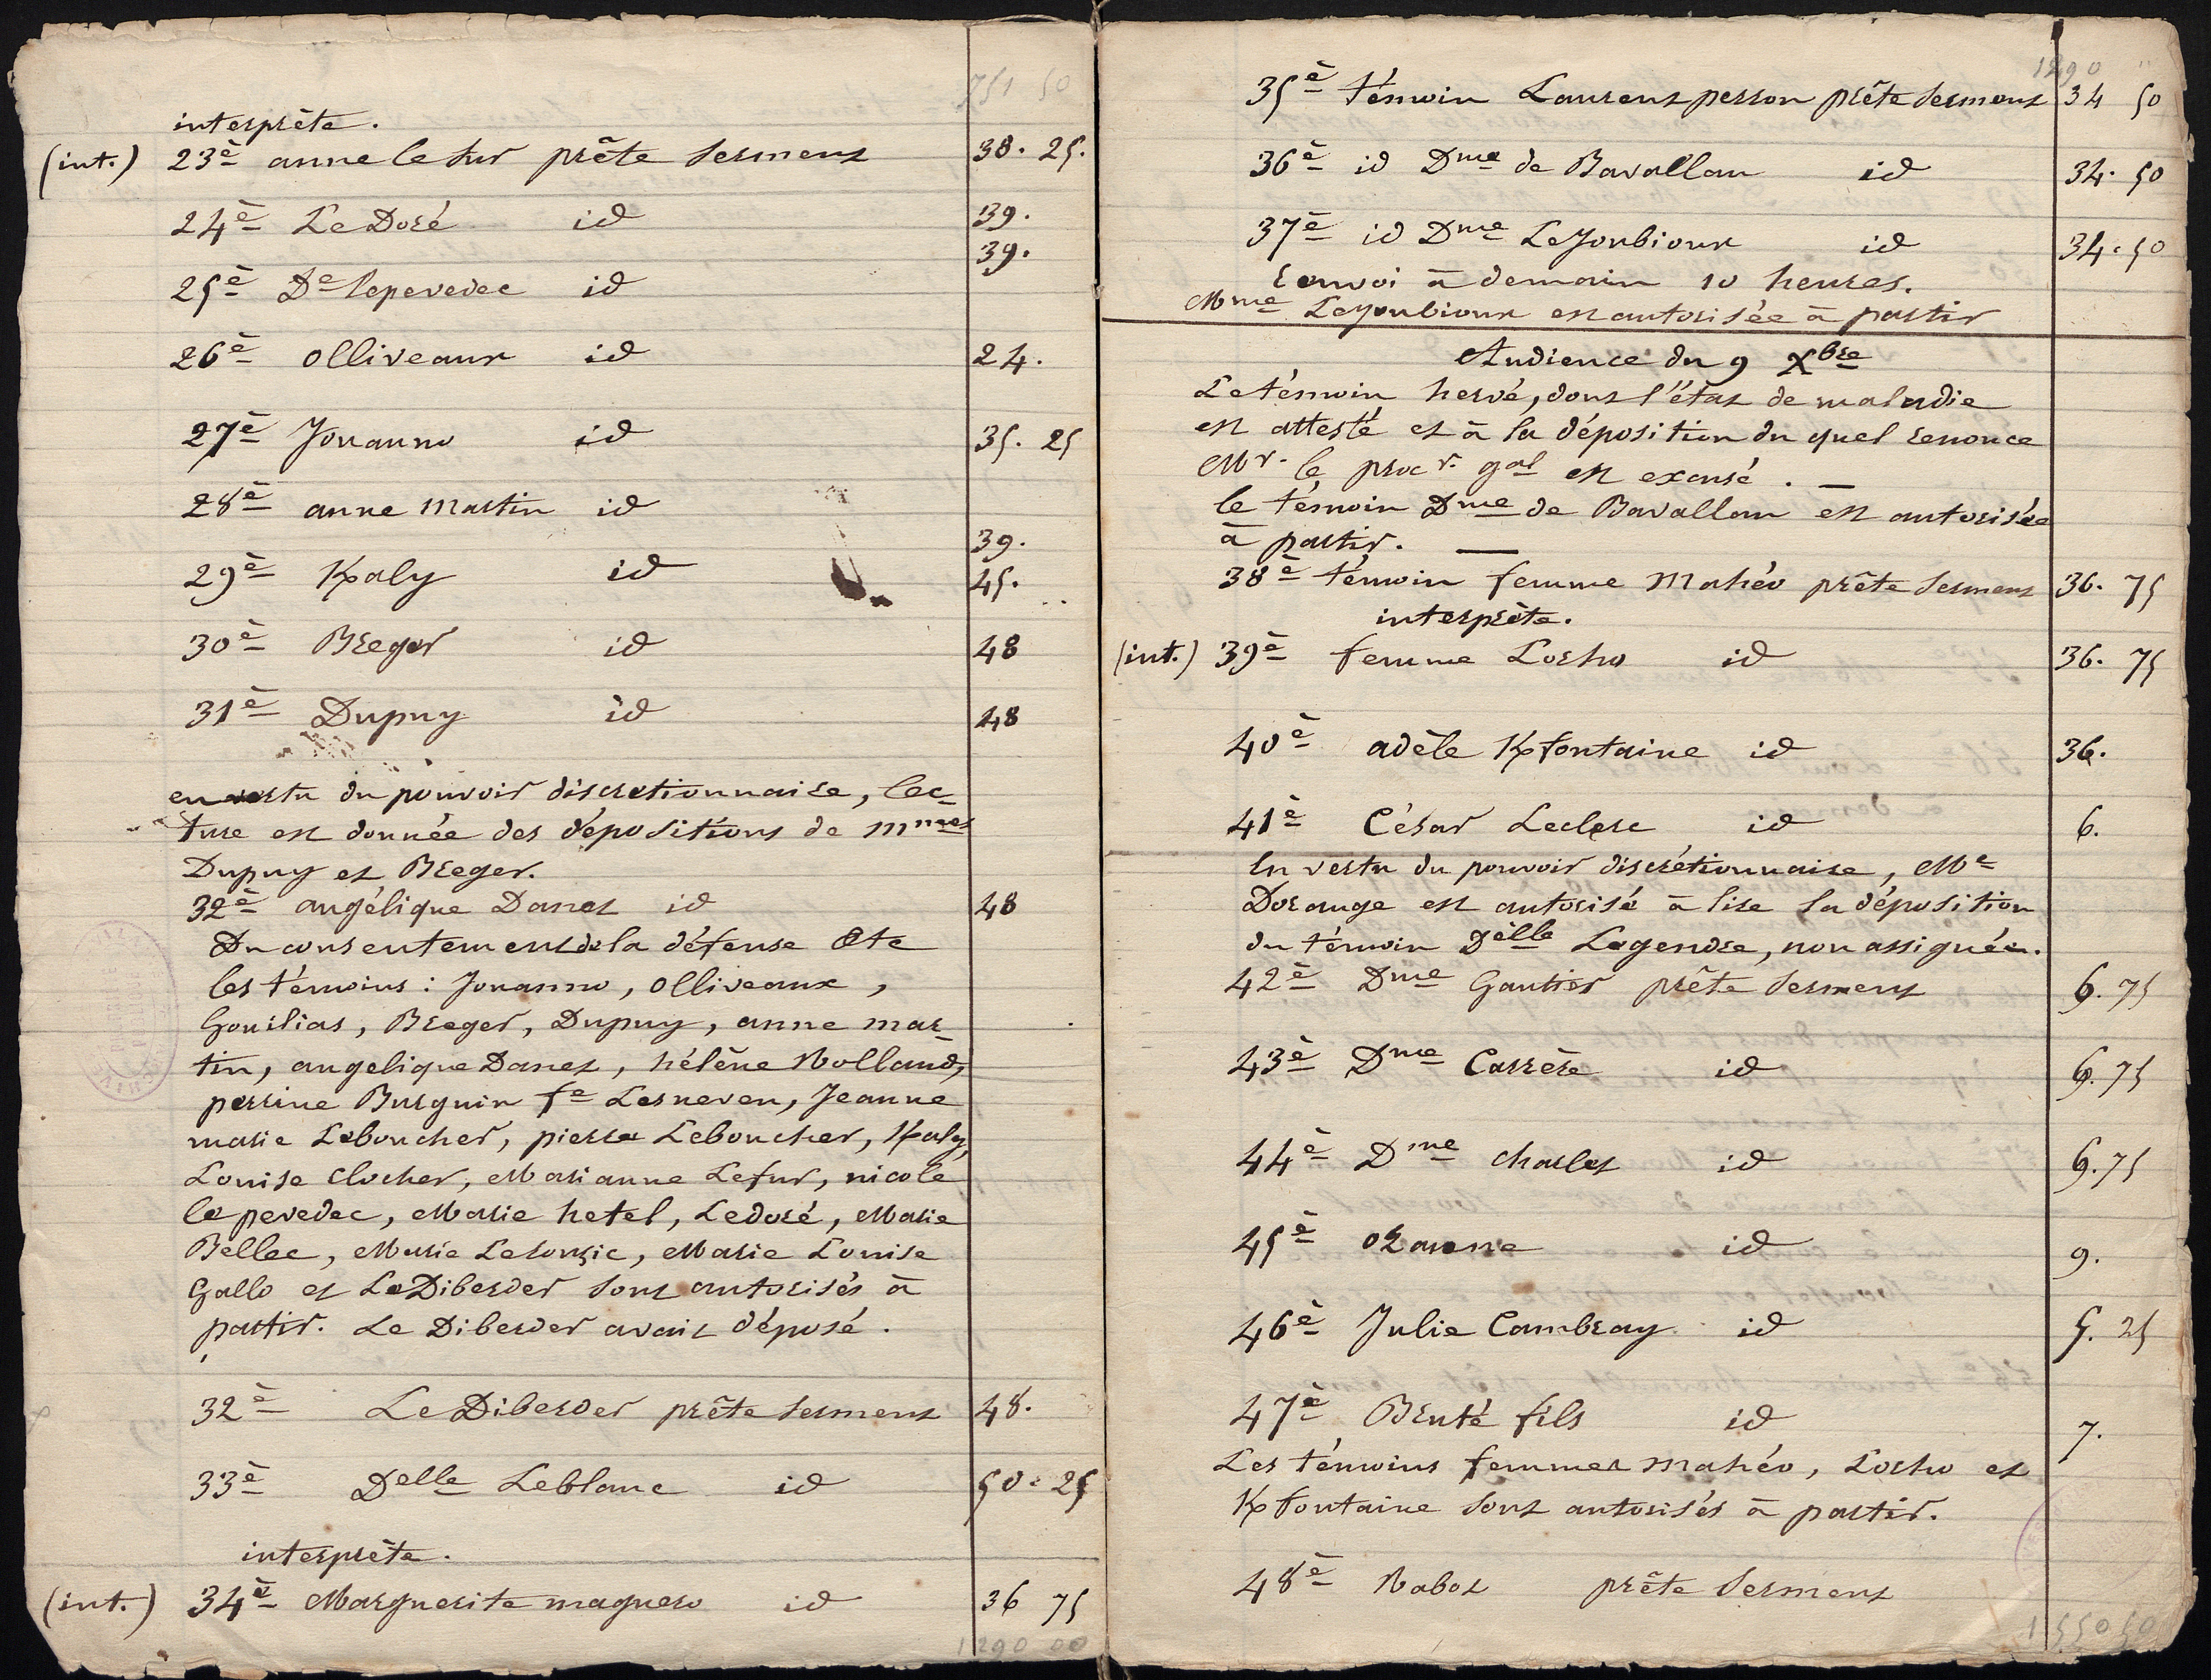 751 50
interprète.
(int.) 23è anne le fur prête serment 38. 25.
24è Le Doré id 39.
39.
25è De lepevedec id
26è Olliveaux id 24.
27è Jouanno id 35. 25
28è anne Martin id
39.
29è Kaly id 45.
30è Breger id 48
31è Dupuy id 48
en vertu du pouvoir discrétionnaire, lec-
ture est donnée des dépositions de Mmes
Dupuy et Breger.
32è angélique Danet id 48
Du consentement de la défense &te
les témoins : Jouanno, Olliveaux,
Gouilias, Breger, Dupuy, anne mar-
tin, angelique Danet, hélène Nolland,
perrine Burguin fe Lesneven, Jeanne
marie Leboucher, pierre Leboucher, Kaly,
Louise Clocher, Marianne Lefur, nicole
le pevedec, Marie hetel, Ledoré, Marie
Bellec, Marie Lesouzic, Marie Louise
Gallo et Le Diberder sont autorisés à
partir. Le Diberder avait déposé.
32è Le Diberder prête serment 48.
33è Delle Leblanc id 50. 25
interprète.
(int.) 34è Marguerite maguero id 36 75
1290 00
1290 "
35è témoin Laurent perron prête serment 34 50
36è id Dme de Bavallan id 34. 50
37è id Dme Leyoubioux id 34. 50
Renvoi à demain 10 heures.
Mme Leyoubioux est autorisée à partir
Audience du 9 Xbre
Le témoin hervé, dont l'état de maladie
est attesté et à la déposition du quel renonce
Mr. le procr. gal est excusé. —
le témoin Dme de Bavallan est autorisée
à partir. —
38è témoin femme Mahéo prête serment 36. 75
interprète.
(int.) 39è femme Lorho id 36. 75
40è adèle Kfontaine id 36.
41è César Leclerc id 6.
En vertu du pouvoir discrétionnaire, Me
Dorange est autorisé à lire la déposition
du témoin Delle Legendre, non assignée.
42è Dme Gautier prête serment 6. 75
43è Dme Carrère id 6. 75
44è Dme Charlet id 6. 75
45è Ozanne id 9.
46è Julie Cambray id 5. 25
47è Bruté fils id 7.
Les témoins femmes Mahéo, Lorho et
Kfontaine sont autorisés à partir.
48è Nabot prête serment
1550 50